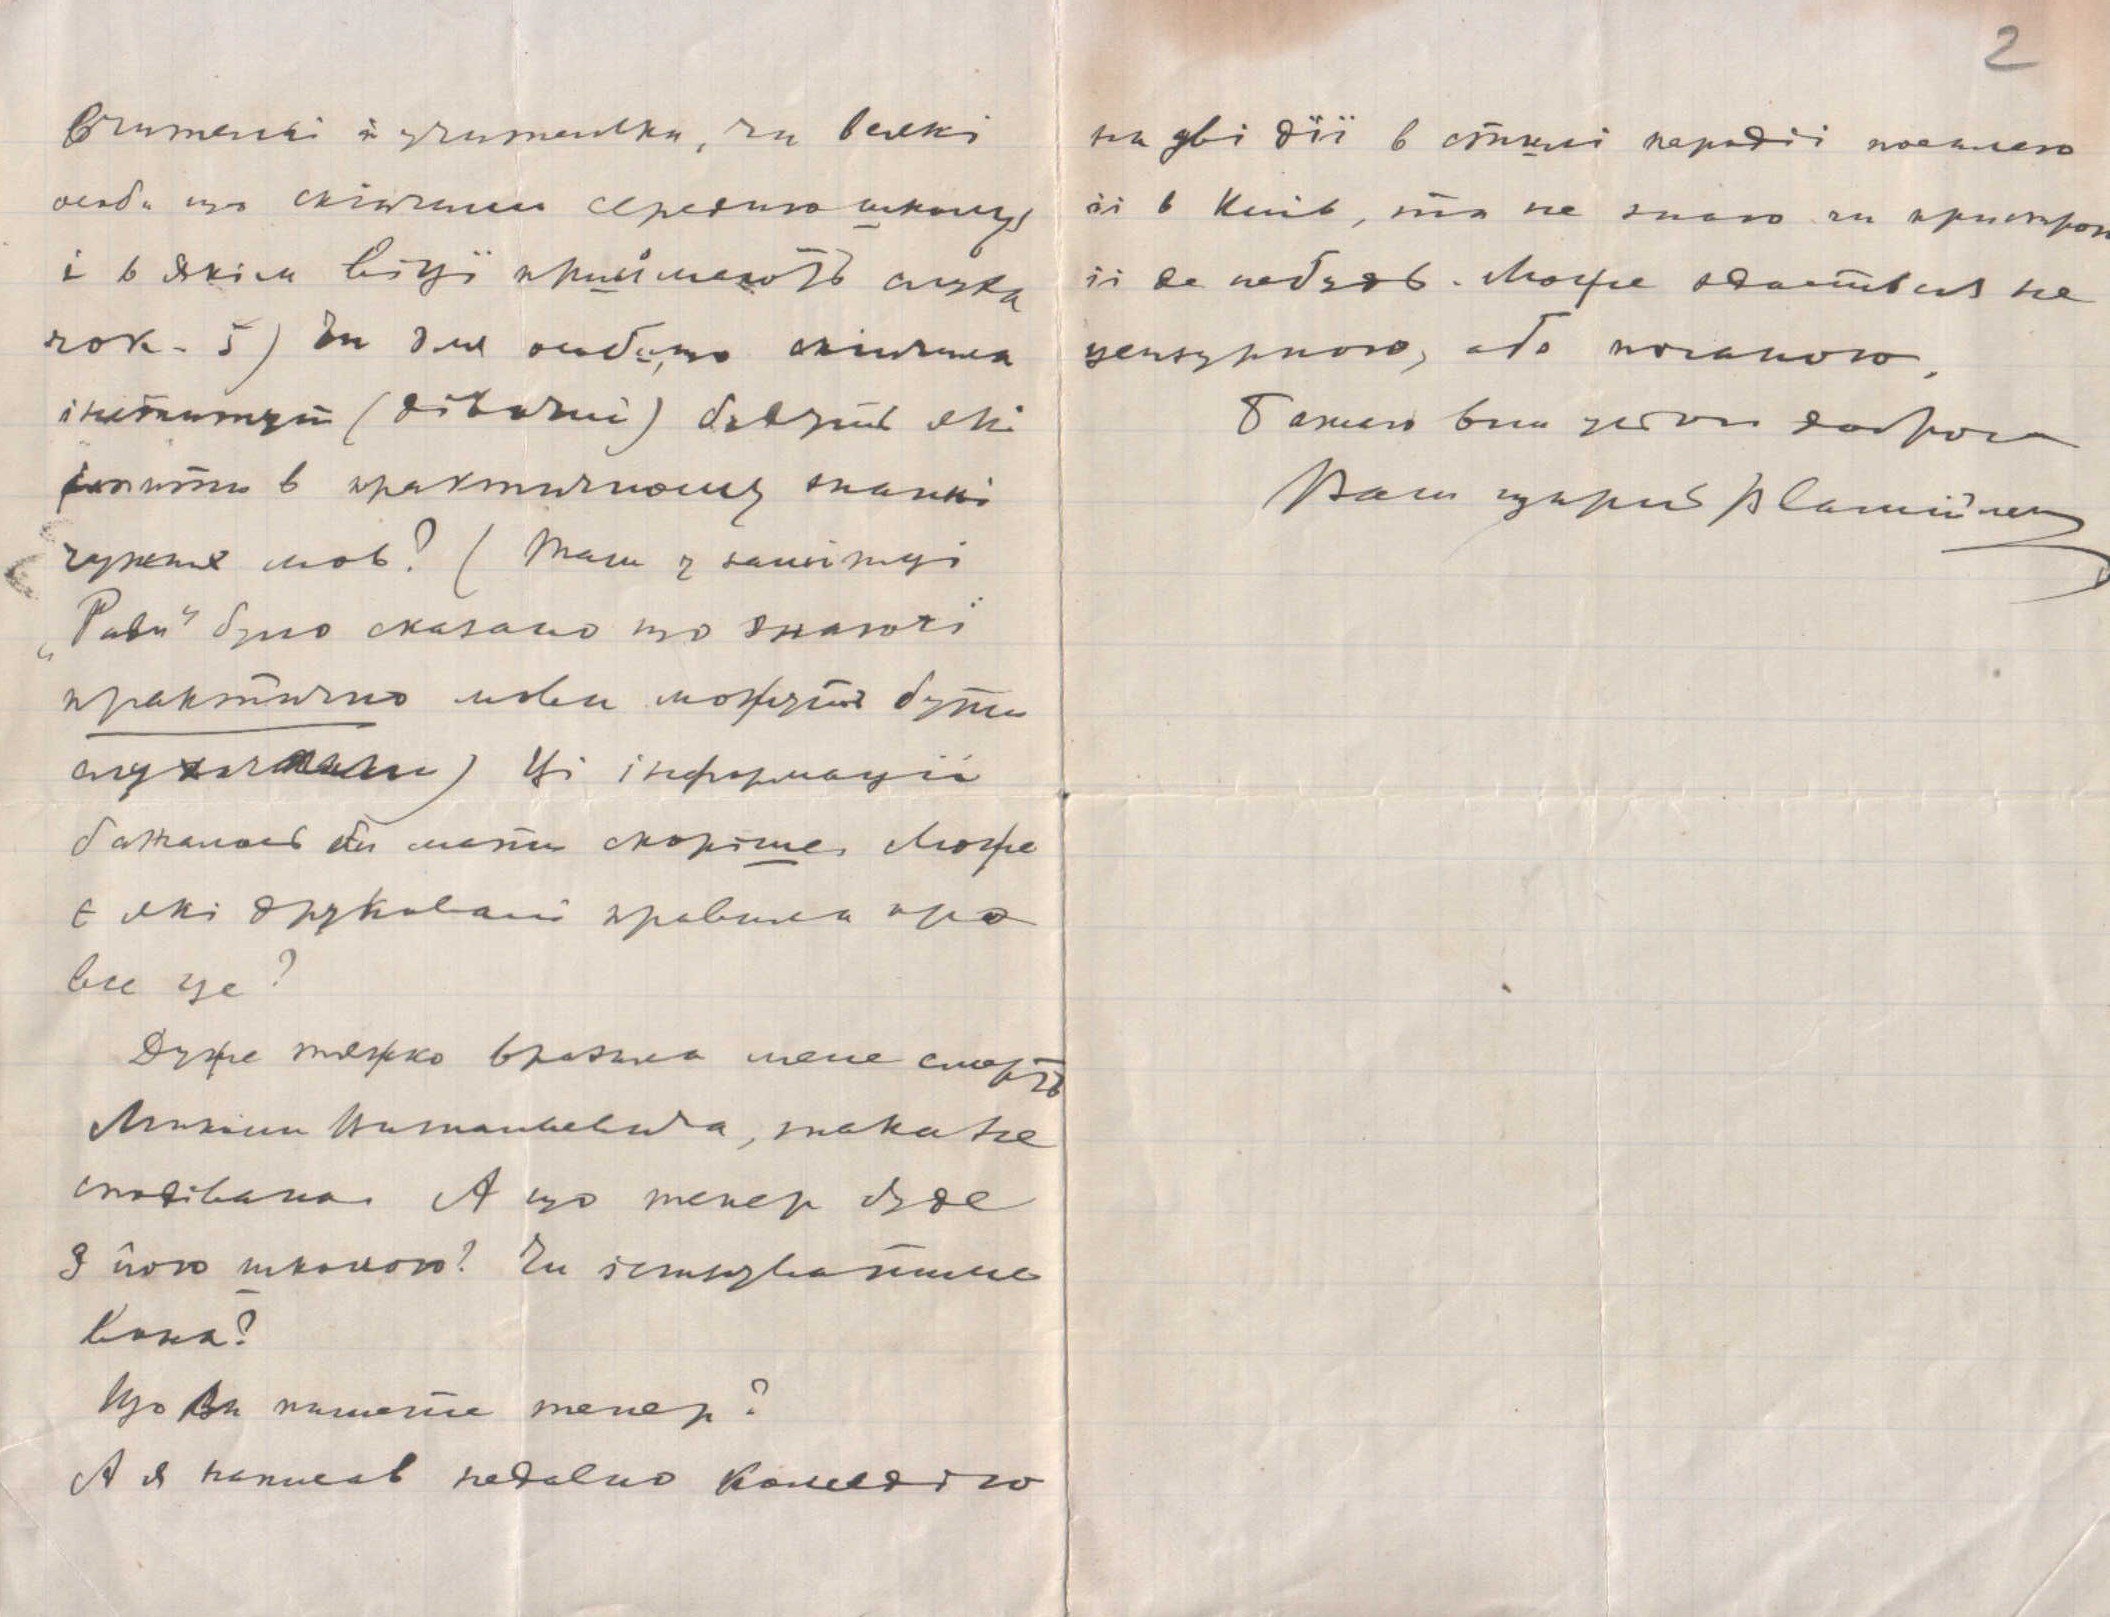 Вчителькі й учителки, чи всякі
особи що скінчили середню школу
і в якім віці приймають слуха
чок. 5) Чи для особи, що скінчила
інститут (дівочий) будуть які
іспити в практичному знанні
чужих мов? (Там у замітці
„Ради" було сказано що знаючі
практично мови можуть бути
слухачками) Ці інформації
бажалось би мати скоріше. Може
є які друковані правила про
все це?
Дуже тяжко вразила мене смерть
Миколи Витальевича, така не
сподівана. А що тепер буде
з його школою? Чи існуватиме
вона?
Що Ви пишете тепер?
А я написав недавно комедію
2
на дві дії в стилі пародії посилаю
її в Київ, та не знаю чи пристрою
її де небудь. Може здасться не
цензурною, або поганою.
Бажаю вам усього доброго
Ваш щирий В Самійленко